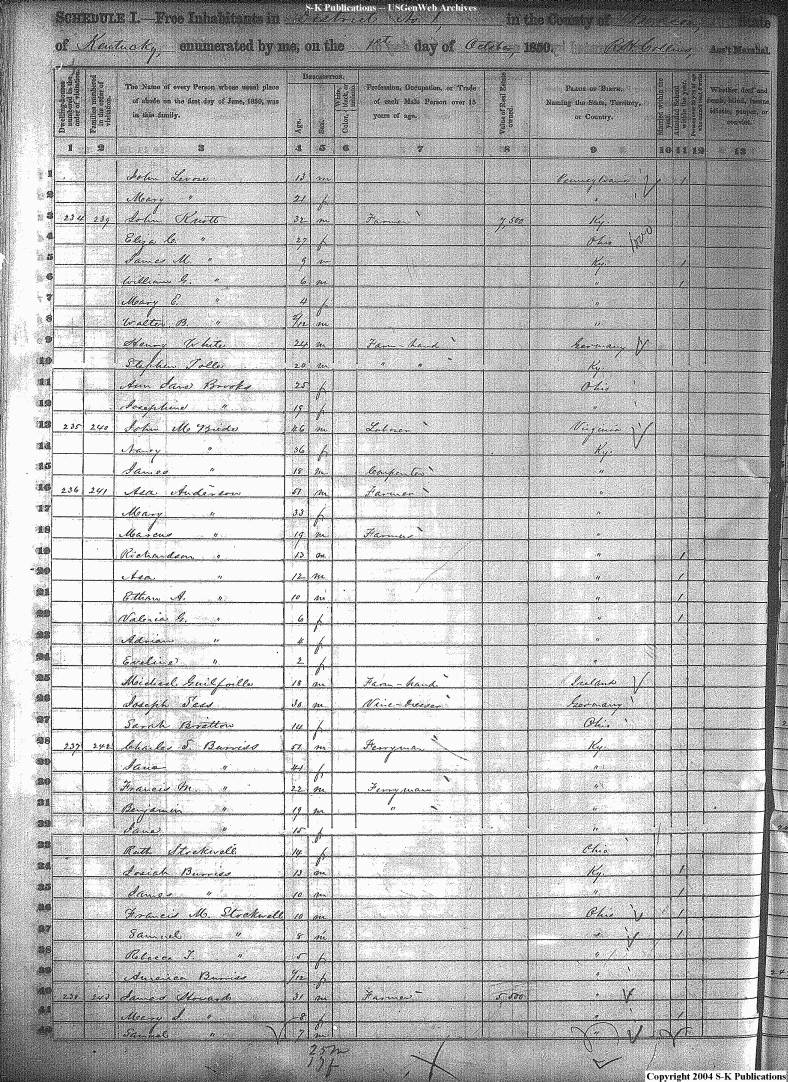 S-K Publications -- USGenWeb Archives
SCHEDULE I.—Free Inhabitants in District No. 1, in the County of State
of Kentucky, enumerated by me, on the 1st day of October, 1850. R. H. Collins, Ass't Marshal.
Dwelling-houses numbered in the order of visitation. Families numbered in the order of visitation. The Name of every Person whose usual place of abode on the first day of June, 1850, was in this family. DESCRIPTION. Age. Sex. White, Color, black, or mulatto. Profession, Occupation, or Trade of each Male Person over 15 years of age. Value of Real Estate owned. PLACE OF BIRTH. Naming the State, Territory, or Country. Married within the year. Whether deaf and dumb, blind, insane, idiotic, pauper, or convict.
1 2 3 4 5 6 7 8 9 10 11 12 13
1 John 13 m Pennsylvania 1
2 Mary " 21 f "
3 234 239 John Knott 32 m Farmer 7,500 Ky.
4 Eliza C. " 27 f Ohio
5 James M. " 9 m Ky. 1
6 William G. " 6 m " 1
7 Mary E. " 4 f "
8 Walter B. " m "
9 Henry White 24 m Farm-hand Germany
10 Stephen 20 m " " Ky.
11 Ann Jane Brooks 25 f Ohio
12 Josephine " 19 f "
13 235 240 John McBride 46 m Laborer Virginia
14 Nancy " 36 f Ky.
15 James " 18 m Carpenter "
16 236 241 Asa Anderson 51 m Farmer "
17 Mary " 33 f "
18 Marcus " 19 m Farmer "
19 Richardson " 13 m " 1
20 Asa " 12 m " 1
21 Ethan A. " 10 m " 1
22 Valeria G. " 6 f " 1
23 Adrian " 4 f "
24 Eveline " 2 f "
25 Michael Guilfoile 18 m Farm-hand Ireland
26 Joseph 30 m Vine-Dresser Germany
27 Sarah Bratton 14 f Ohio
28 237 242 Charles T. Burriss 51 m Ferryman Ky.
29 Jane " 41 f "
30 Francis M. " 22 m Ferryman "
31 Benjamin " 19 m " "
32 Jane " 15 f "
33 Ruth Stockwell 14 f Ohio
34 Josiah Burriss 13 m Ky. 1
35 James " 10 m " 1
36 Francis M. Stockwell 10 m Ohio 1
37 Samuel " 8 m " 1
38 Rebecca T. " 5 f "
39 America Burriss f "
40 238 243 James Howard 31 m Farmer 5,500 "
41 Mary S. " 8 f " 1
42 Samuel " 7 m "
25 m
17 f
Copyright 2004 S-K Publications